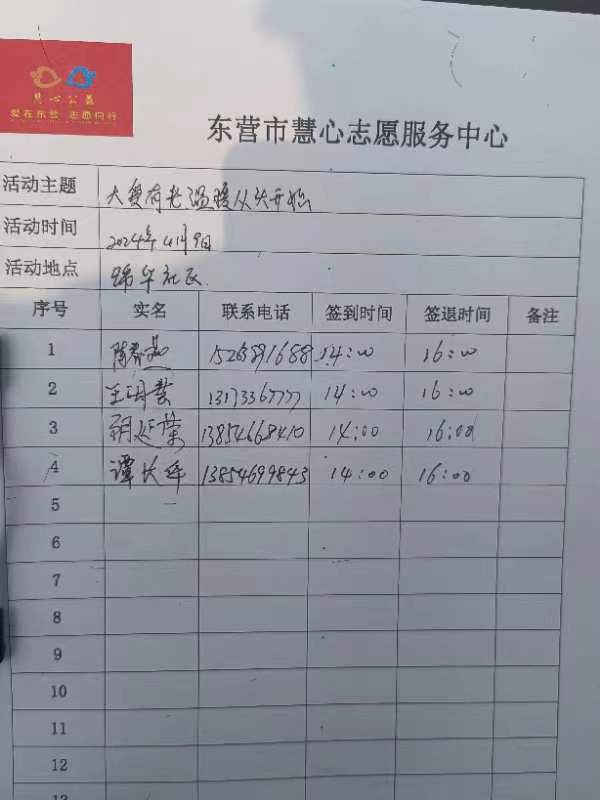 慧心公益
爱在东营 志愿同行
东营市慧心志愿服务中心
活动主题 大爱有光温暖从头开始
活动时间 2024年4月9日
活动地点 锦华社区
序号 实名 联系电话 签到时间 签退时间 备注
1 陈 14:00 16:00
2 王 13173367777 14:00 16:00
3 胡延荣 13854668410 14:00 16:00
4 谭长 13854699843 14:00 16:00
5
6
7
8
9
10
11
12
13